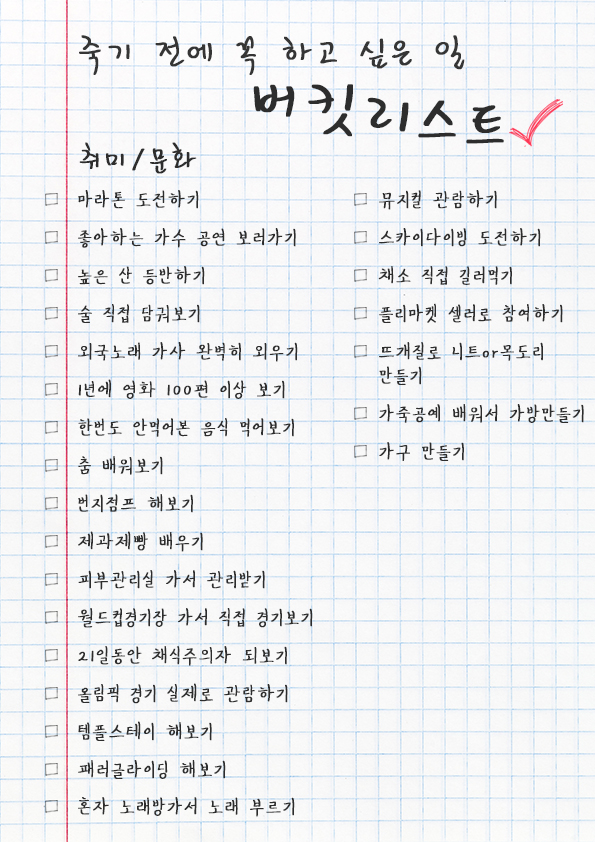 죽기 전에 꼭 하고 싶은 일
버킷리스트
취미/문화
마라톤 도전하기
좋아하는 가수 공연 보러가기
높은 산 등반하기
술 직접 담궈보기
외국노래 가사 완벽히 외우기
1년에 영화 100편 이상 보기
한번도 안먹어본 음식 먹어보기
춤 배워보기
번지점프 해보기
제과제빵 배우기
피부관리실 가서 관리받기
월드컵경기장 가서 직접 경기보기
21일동안 채식주의자 되보기
올림픽 경기 실제로 관람하기
템플스테이 해보기
패러글라이딩 해보기
혼자 노래방가서 노래 부르기
뮤지컬 관람하기
스카이다이빙 도전하기
채소 직접 길러먹기
플리마켓 셀러로 참여하기
뜨개질로 니트or목도리
만들기
가죽공예 배워서 가방만들기
가구 만들기